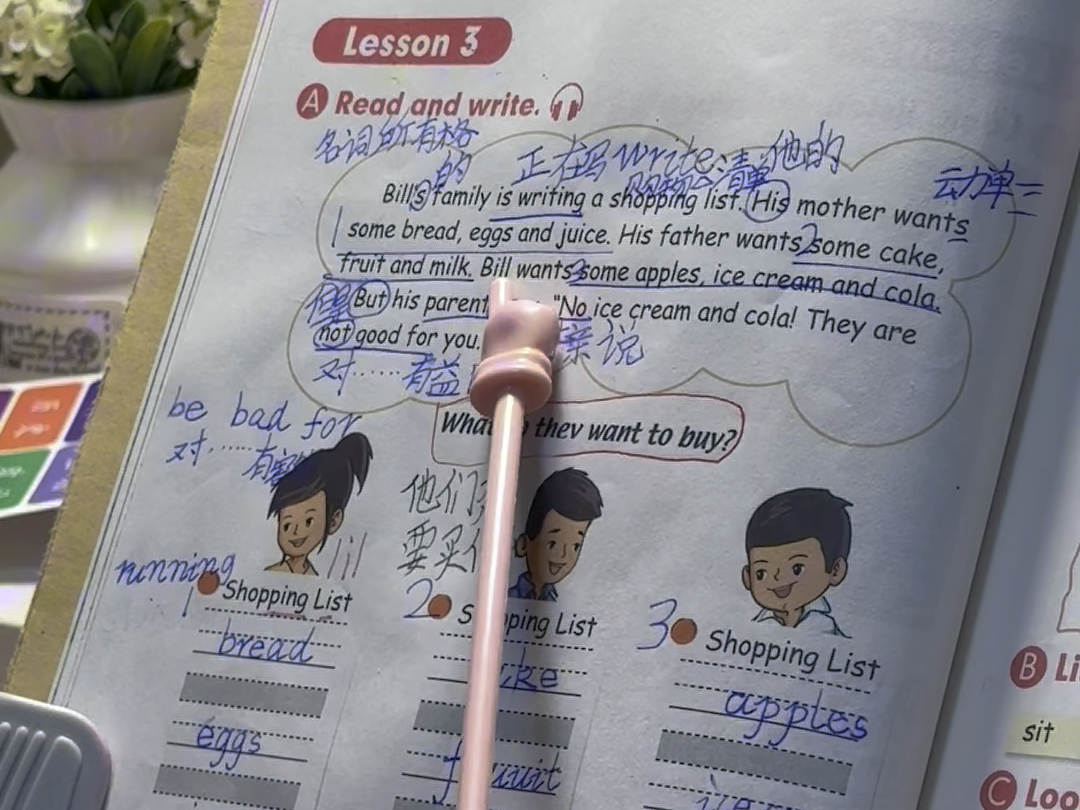 Lesson 3
A Read and write.
名词所有格
的
正在写 write
清单
他的
动单三
Bill's family is writing a shopping list. His mother wants
1 some bread, eggs and juice. His father wants 2 some cake,
fruit and milk. Bill wants 3 some apples, ice cream and cola.
But his parent "No ice cream and cola! They are
not good for you.
亲说
对……有益
be bad for
对……有害
What they want to buy?
他们
要买
running
1 Shopping List
2 S ping List
3 Shopping List
bread
ke
apples
eggs
f uit
B Li
sit
C Loo